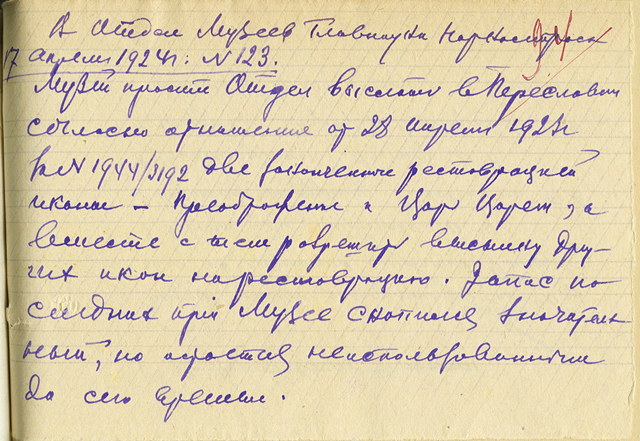 В Отдел Музеев Главнауки Наркомпроса
17 апреля 1924 г. № 123.
Музей просит Отдел выслать в Переславль
согласно отношения от 28 апреля 1923 г
за № 1944/3192 две законченные реставрацией
иконы – Преображение и Царь Царем, а
вместе с тем разрешить высылку дру-
гих икон на реставрацию. Запас по-
следних при Музее скопился значитель-
ный, но остается неиспользованным
до сего времени.